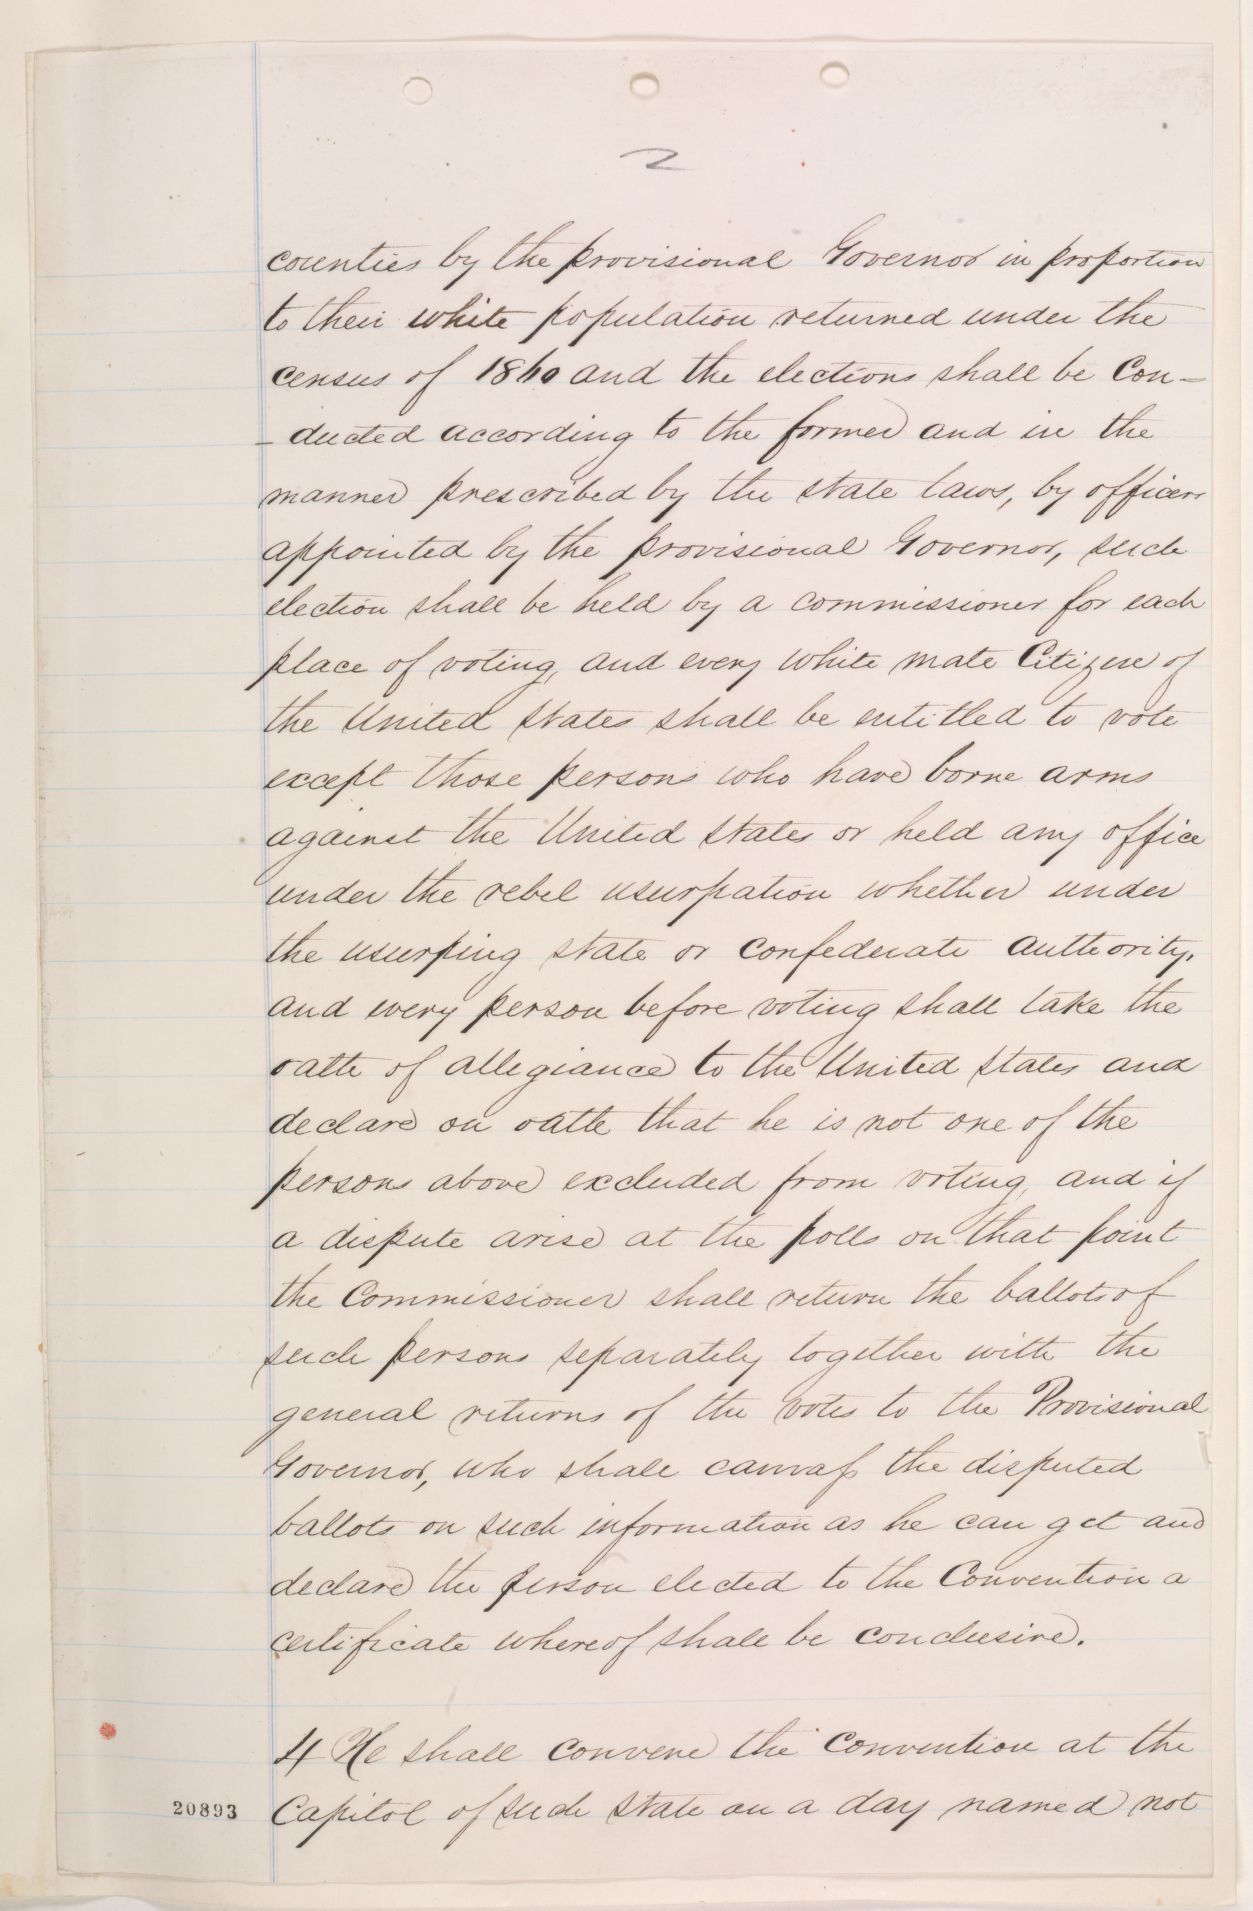 2
counties by the provisional Governor in proportion
to their white population returned under the
census of 1860 and the elections shall be Con-
- ducted according to the former and in the
manner prescribed by the state laws, by officers
appointed by the provisional Governor, such
election shall be held by a commissioner for each
place of voting, and every white mate Citizen of
the United States shall be entitled to vote
except those persons who have borne arms
against the United States or held any office
under the rebel usurpation whether under
the usurping state or confederate authority,
and every person before voting shall take the
oath of allegiance to the United States and
declare on oath that he is not one of the
persons above excluded from voting, and if
a dispute arise at the polls on that point
the Commissioner shall return the ballots of
such persons separately together with the
general returns of the votes to the Provisional
Governor, who shall canvass the disputed
ballots on such information as he can get and
declare the person elected to the Convention a
certificate whereof shall be conclusive.
4 He shall convene the Convention at the
20893 Capitol of such state on a day named not